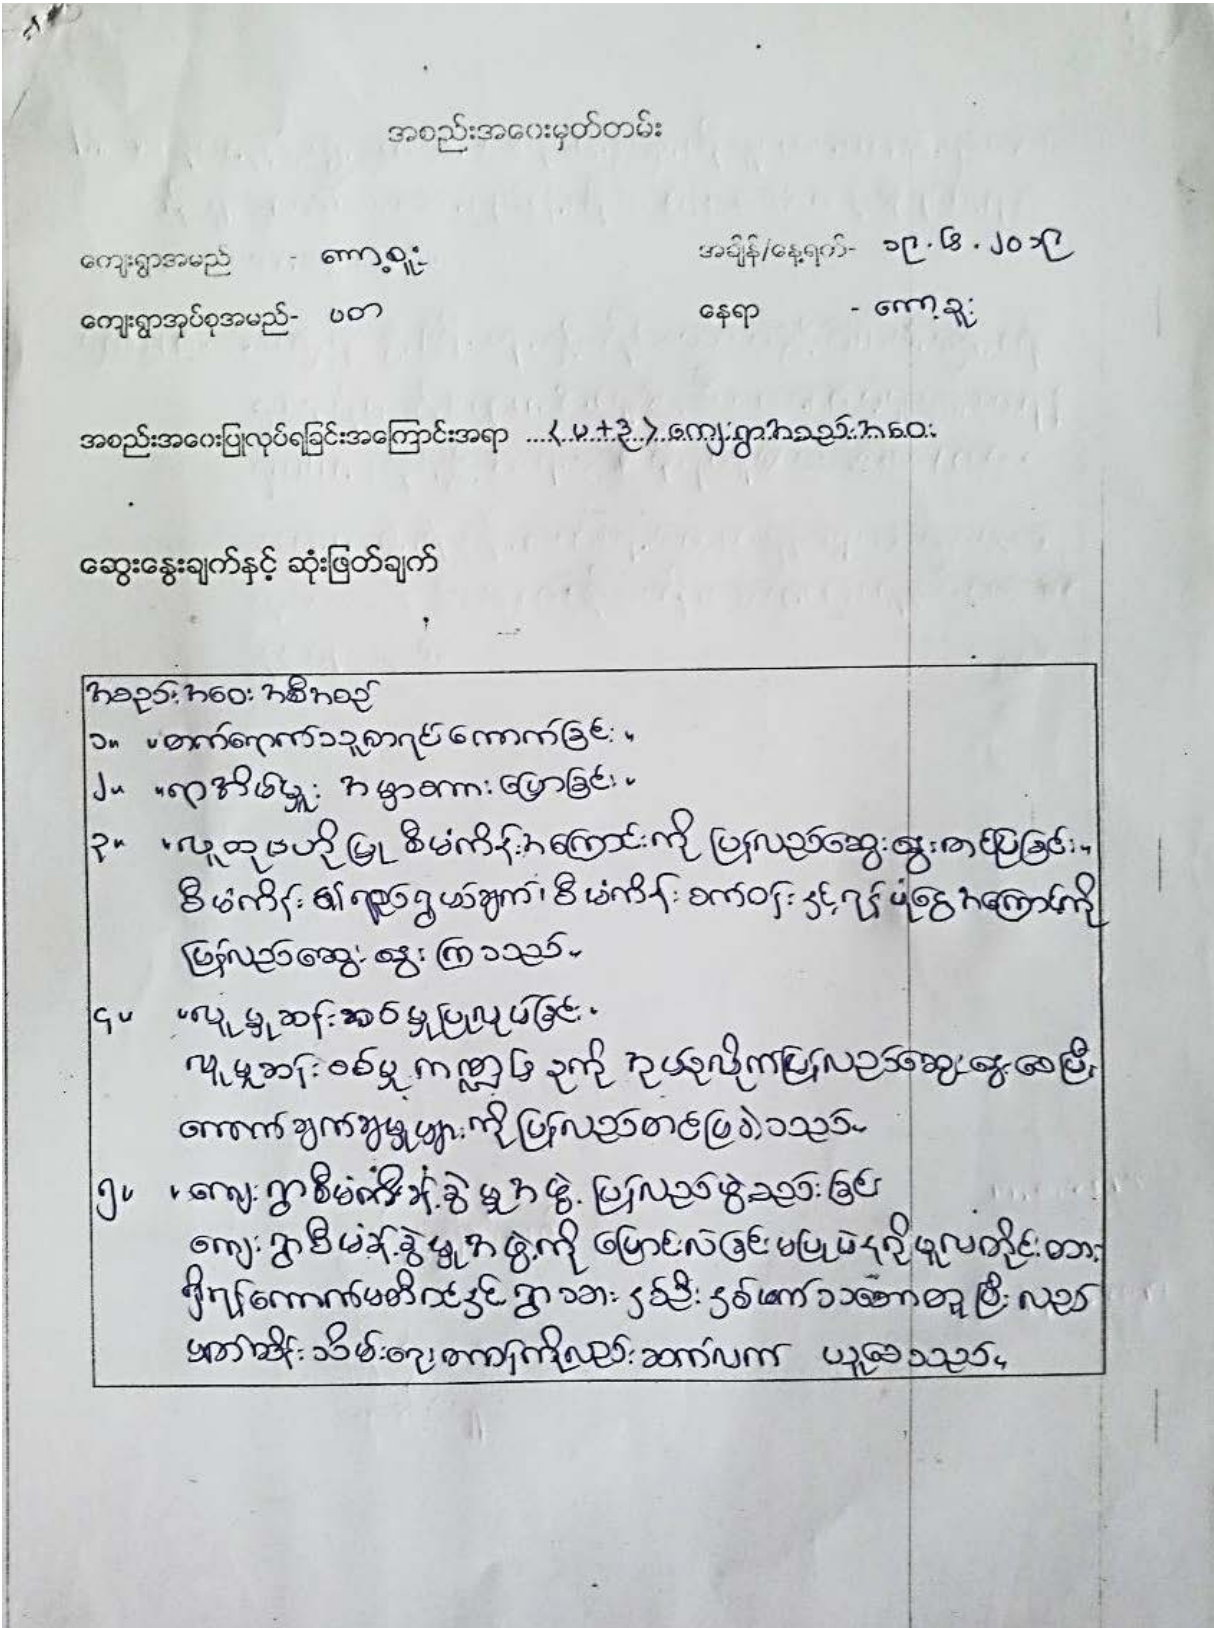 အစည်းအဝေးမှတ်တမ်း
ကျေးရွာအမည် - ကော့စူး အချိန်/နေ့ရက်- ၁၉.၆.၂၀၁၉
ကျေးရွာအုပ်စုအမည်- ပတာ နေရာ - ကော့ဒူး
အစည်းအဝေးပြုလုပ်ရခြင်းအကြောင်းအရာ ...<..ပ.+.၃..>.ကျေးရွာအစည်းအဝေး
ဆွေးနွေးချက်နှင့် ဆုံးဖြတ်ချက်
အစည်းအဝေး အစီအစဉ်
၁။ "တက်ရောက်သူစာရင်းကောက်ခြင်း"
၂။ "ရာအိမ်မှူး အမှာစကားပြောခြင်း"
၃။ "လူထုဗဟိုပြု စီမံကိန်းအကြောင်းကို ပြန်လည်ဆွေးနွေးတင်ပြခြင်း"
စီမံကိန်း၏ရည်ရွယ်ချက်၊ စီမံကိန်းစက်ဝန်းနှင့် ရန်ပုံငွေအကြောင်းကို
ပြန်လည်ဆွေးနွေးကြသည်။
၄။ "လူမှုဆန်းစစ်မှုပြုလုပ်ခြင်း"
လူမှုဆန်းစစ်မှု ကဏ္ဍ ၆ ခုကို အုပ်စုလိုက်ပြန်လည်ဆွေးနွေးစေပြီး
ကောက်ချက်ချမှုများကို ပြန်လည်တင်ပြခဲ့သည်။
၅။ "ကျေးရွာစီမံကိန်းခန့်ခွဲမှုအဖွဲ့ ပြန်လည်ဖွဲ့စည်းခြင်း
ကျေးရွာစီမံခန့်ခွဲမှုအဖွဲ့ကို ပြောင်းလဲခြင်းမပြုပဲ နဂိုမူလအတိုင်းထား
ရှိ ရန်ကောက်မတီဝင်နှင့် ရွာသား နှစ်ဦးနှစ်ဖက် သဘောတူပြီး လည်
ပတ်ထိန်းသိမ်းရေးတာဝန်ကိုလည်း ဆက်လက် ယူစေသည်။